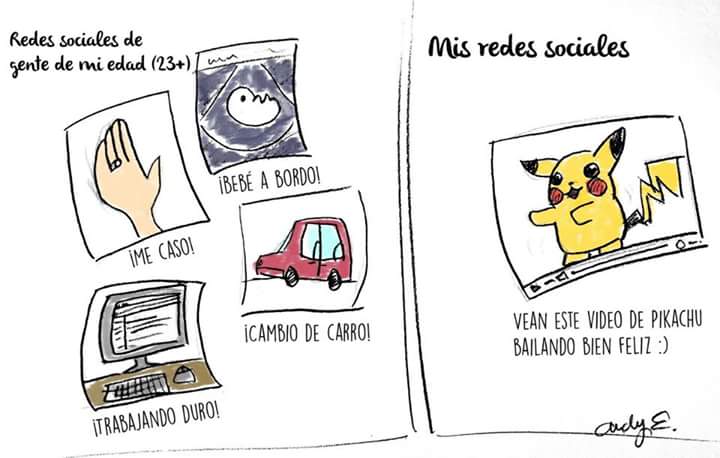 Redes sociales de
gente de mi edad (23+)
¡BEBÉ A BORDO!
¡ME CASO!
¡CAMBIO DE CARRO!
¡TRABAJANDO DURO!
Mis redes sociales
VEAN ESTE VIDEO DE PIKACHU
BAILANDO BIEN FELIZ :)
Andy E.